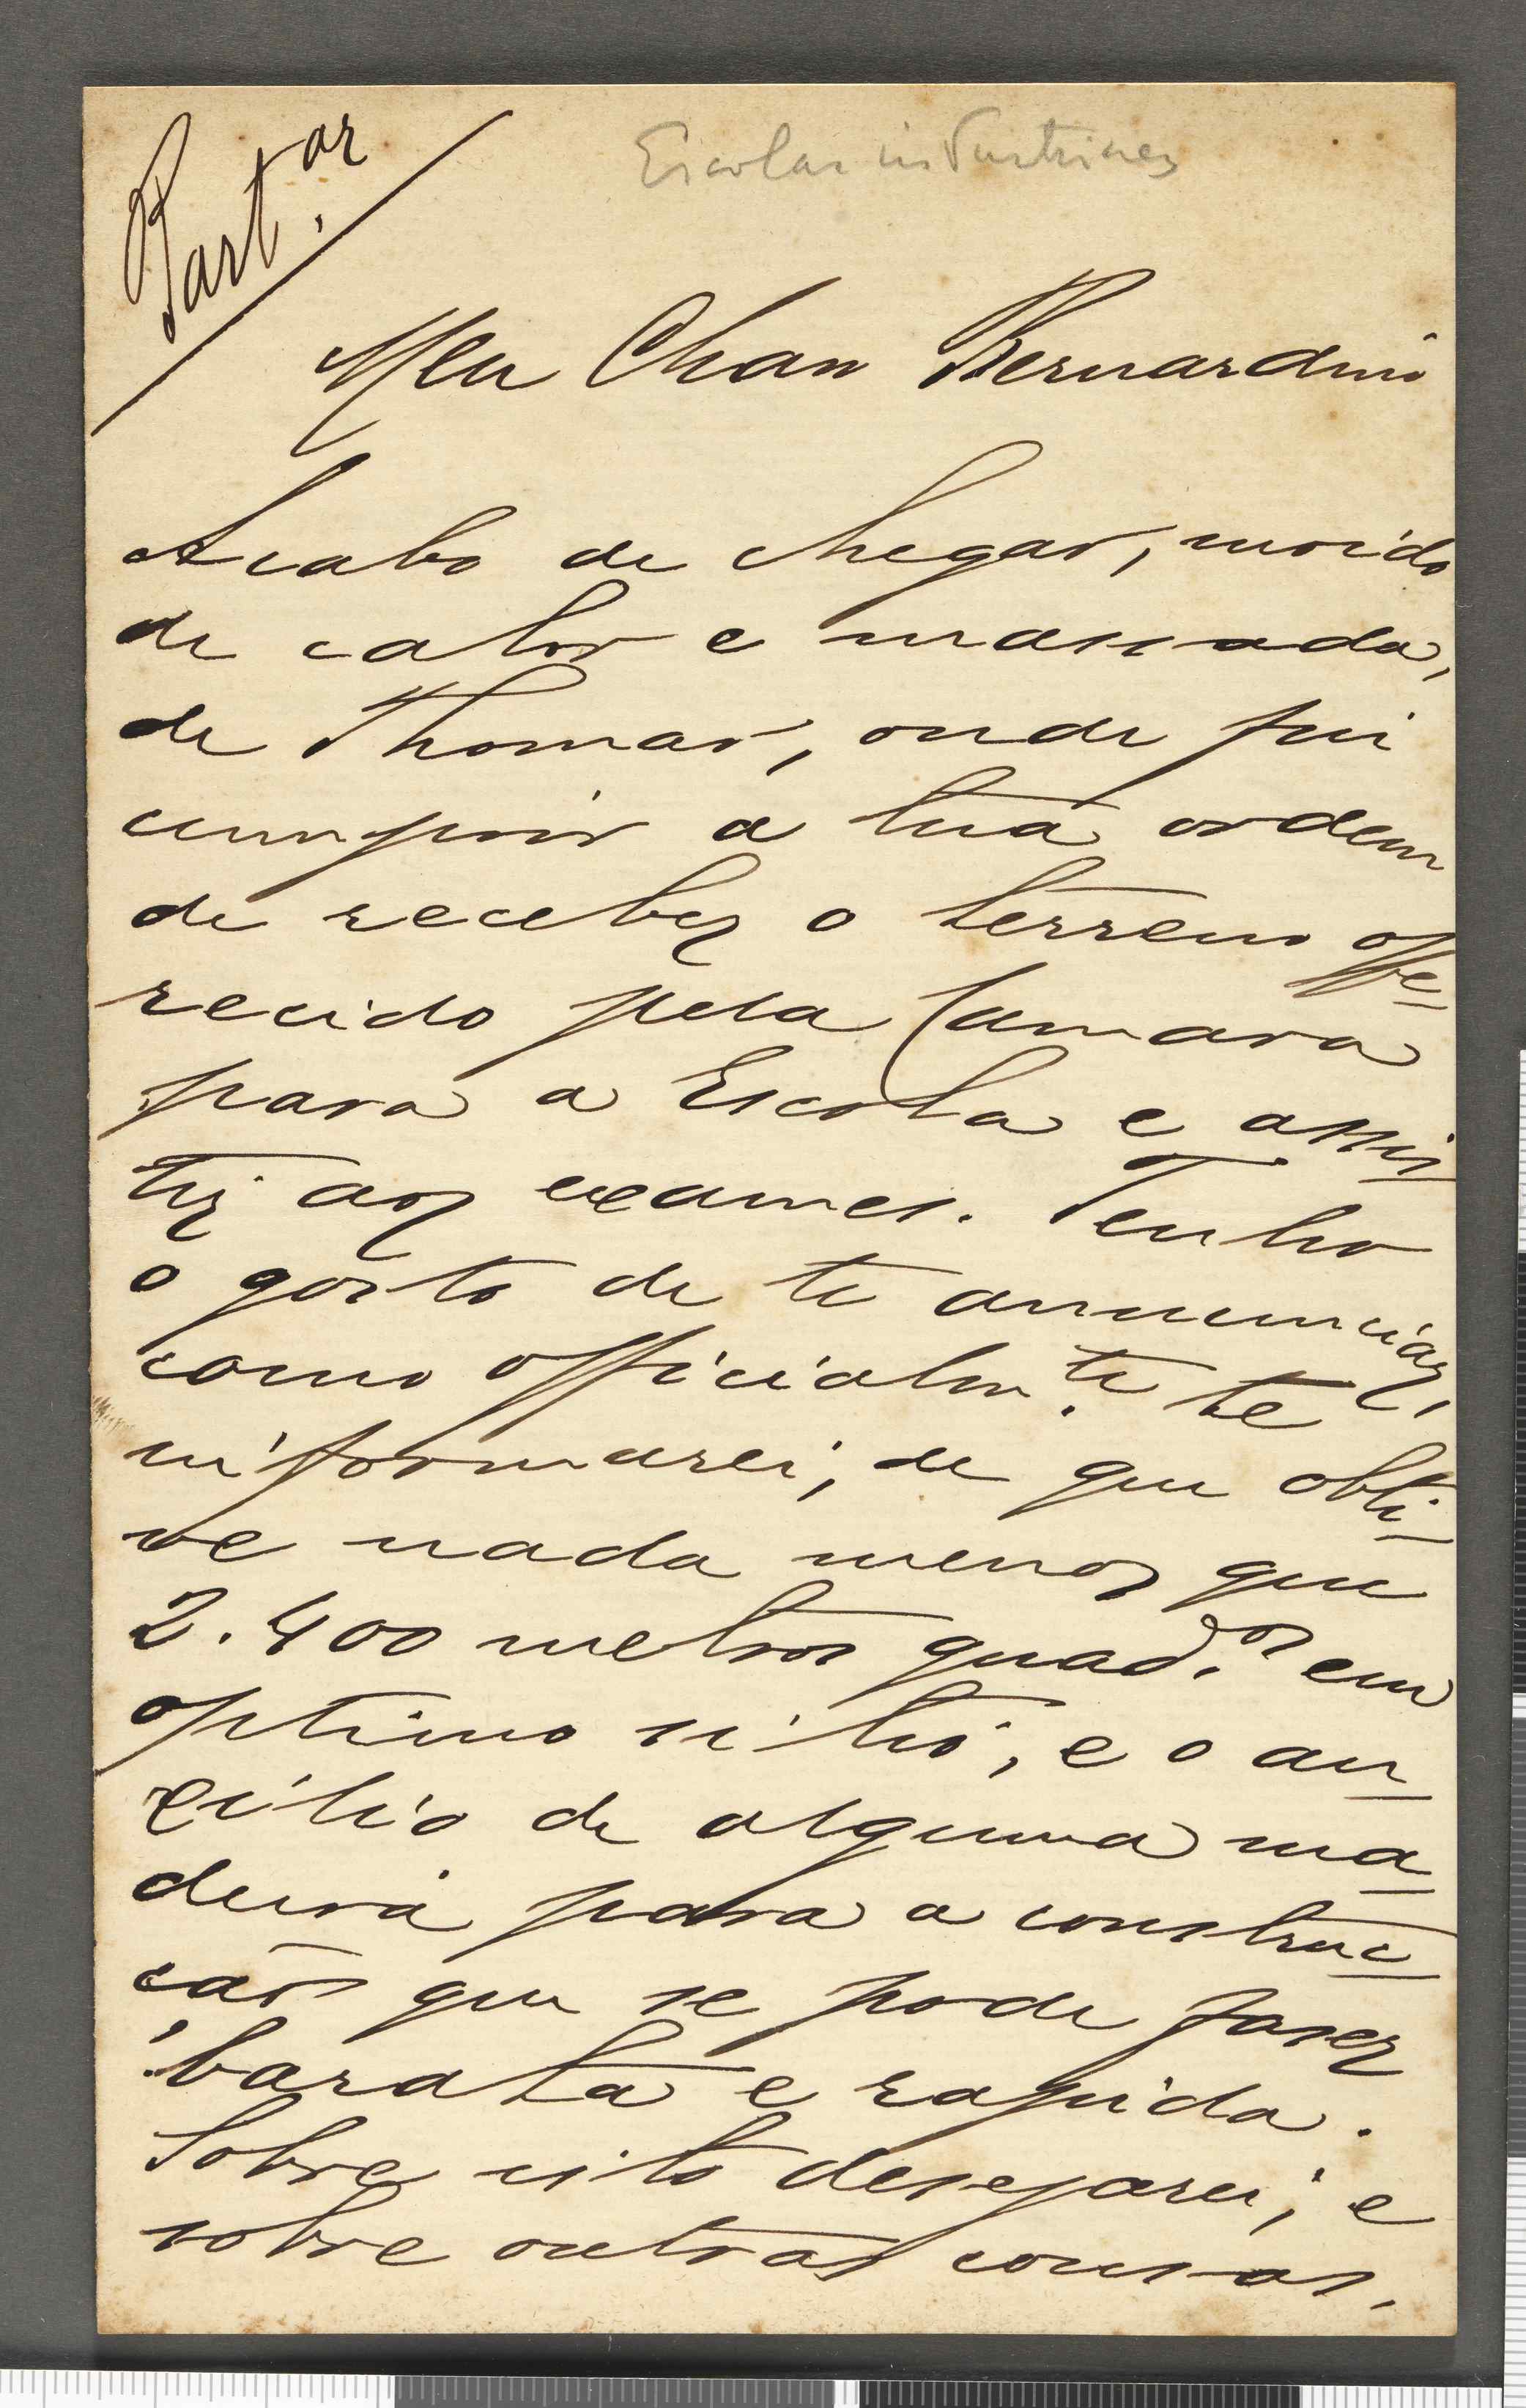 Part.ar
Escolas industriaes
Meu Charo Bernardino
Acabo de chegar, moido
de calor e massada,
de Thomar, onde fui
cumprir a tua ordem
de receber o terreno offe-
recido pela Camara
para a Escola e assis-
tir aos exames. Tenho
o gosto de te annunciar,
como officialm.te te
informarei, de que obti-
ve nada menos que
2.400 metros quad.os em
optimo sitio, e o au-
xilio de alguma ma-
deira para a construc-
cão que se pode faser
barata e rapida.
Sobre isto desejarei, e
sobre outras cousas,